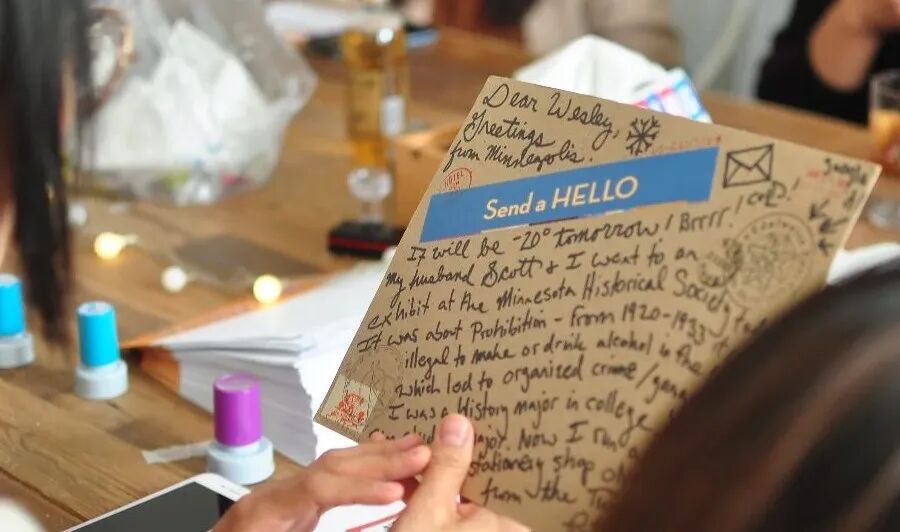 Dear Wesley,
Greetings
from Minneapolis.
Send a HELLO
It will be -20° tomorrow! Brrr! cold!
My husband Scott & I went to an
exhibit at the Minnesota Historical Society
It was about Prohibition - from 1920-1933
illegal to make or drink alcohol in the
which led to organized crime/
I was a History major in college
major. Now I run
stationery shop
from the